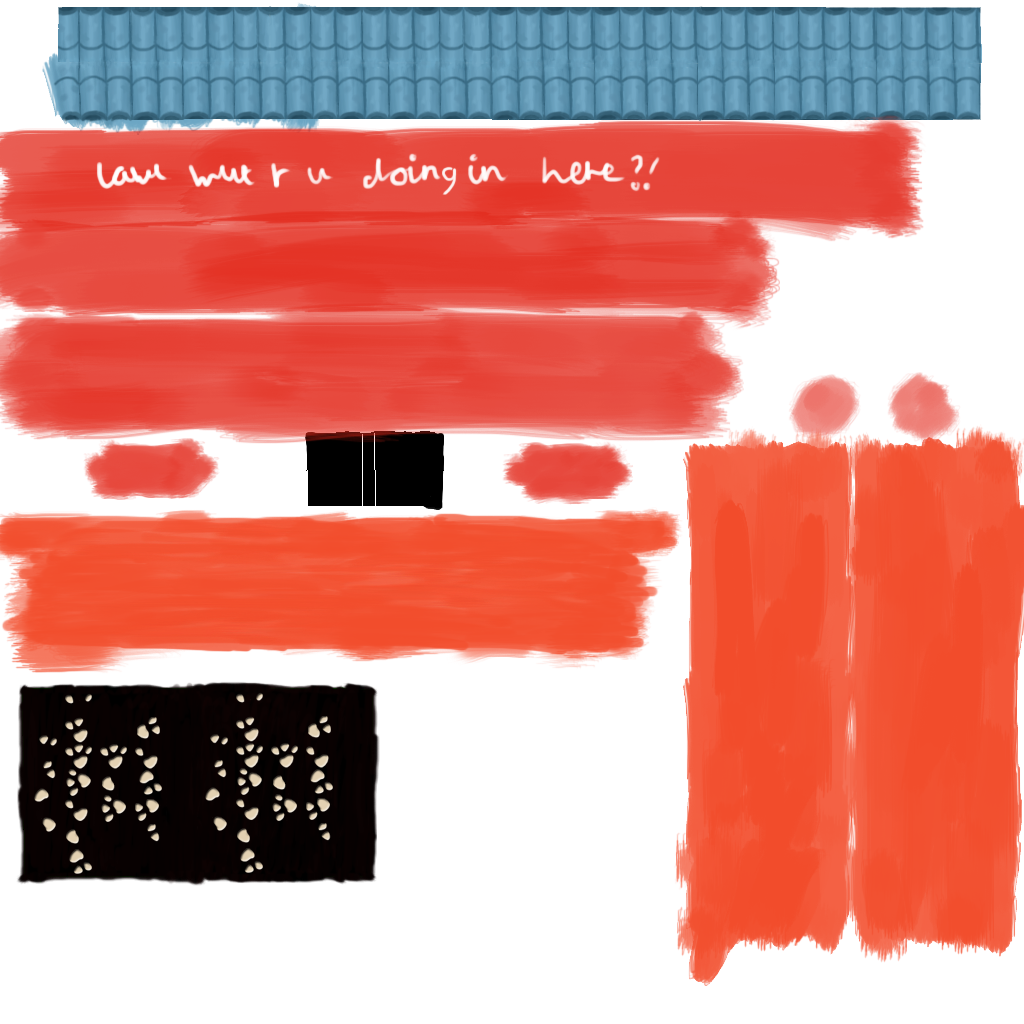 lawl wut r u doing in here?!